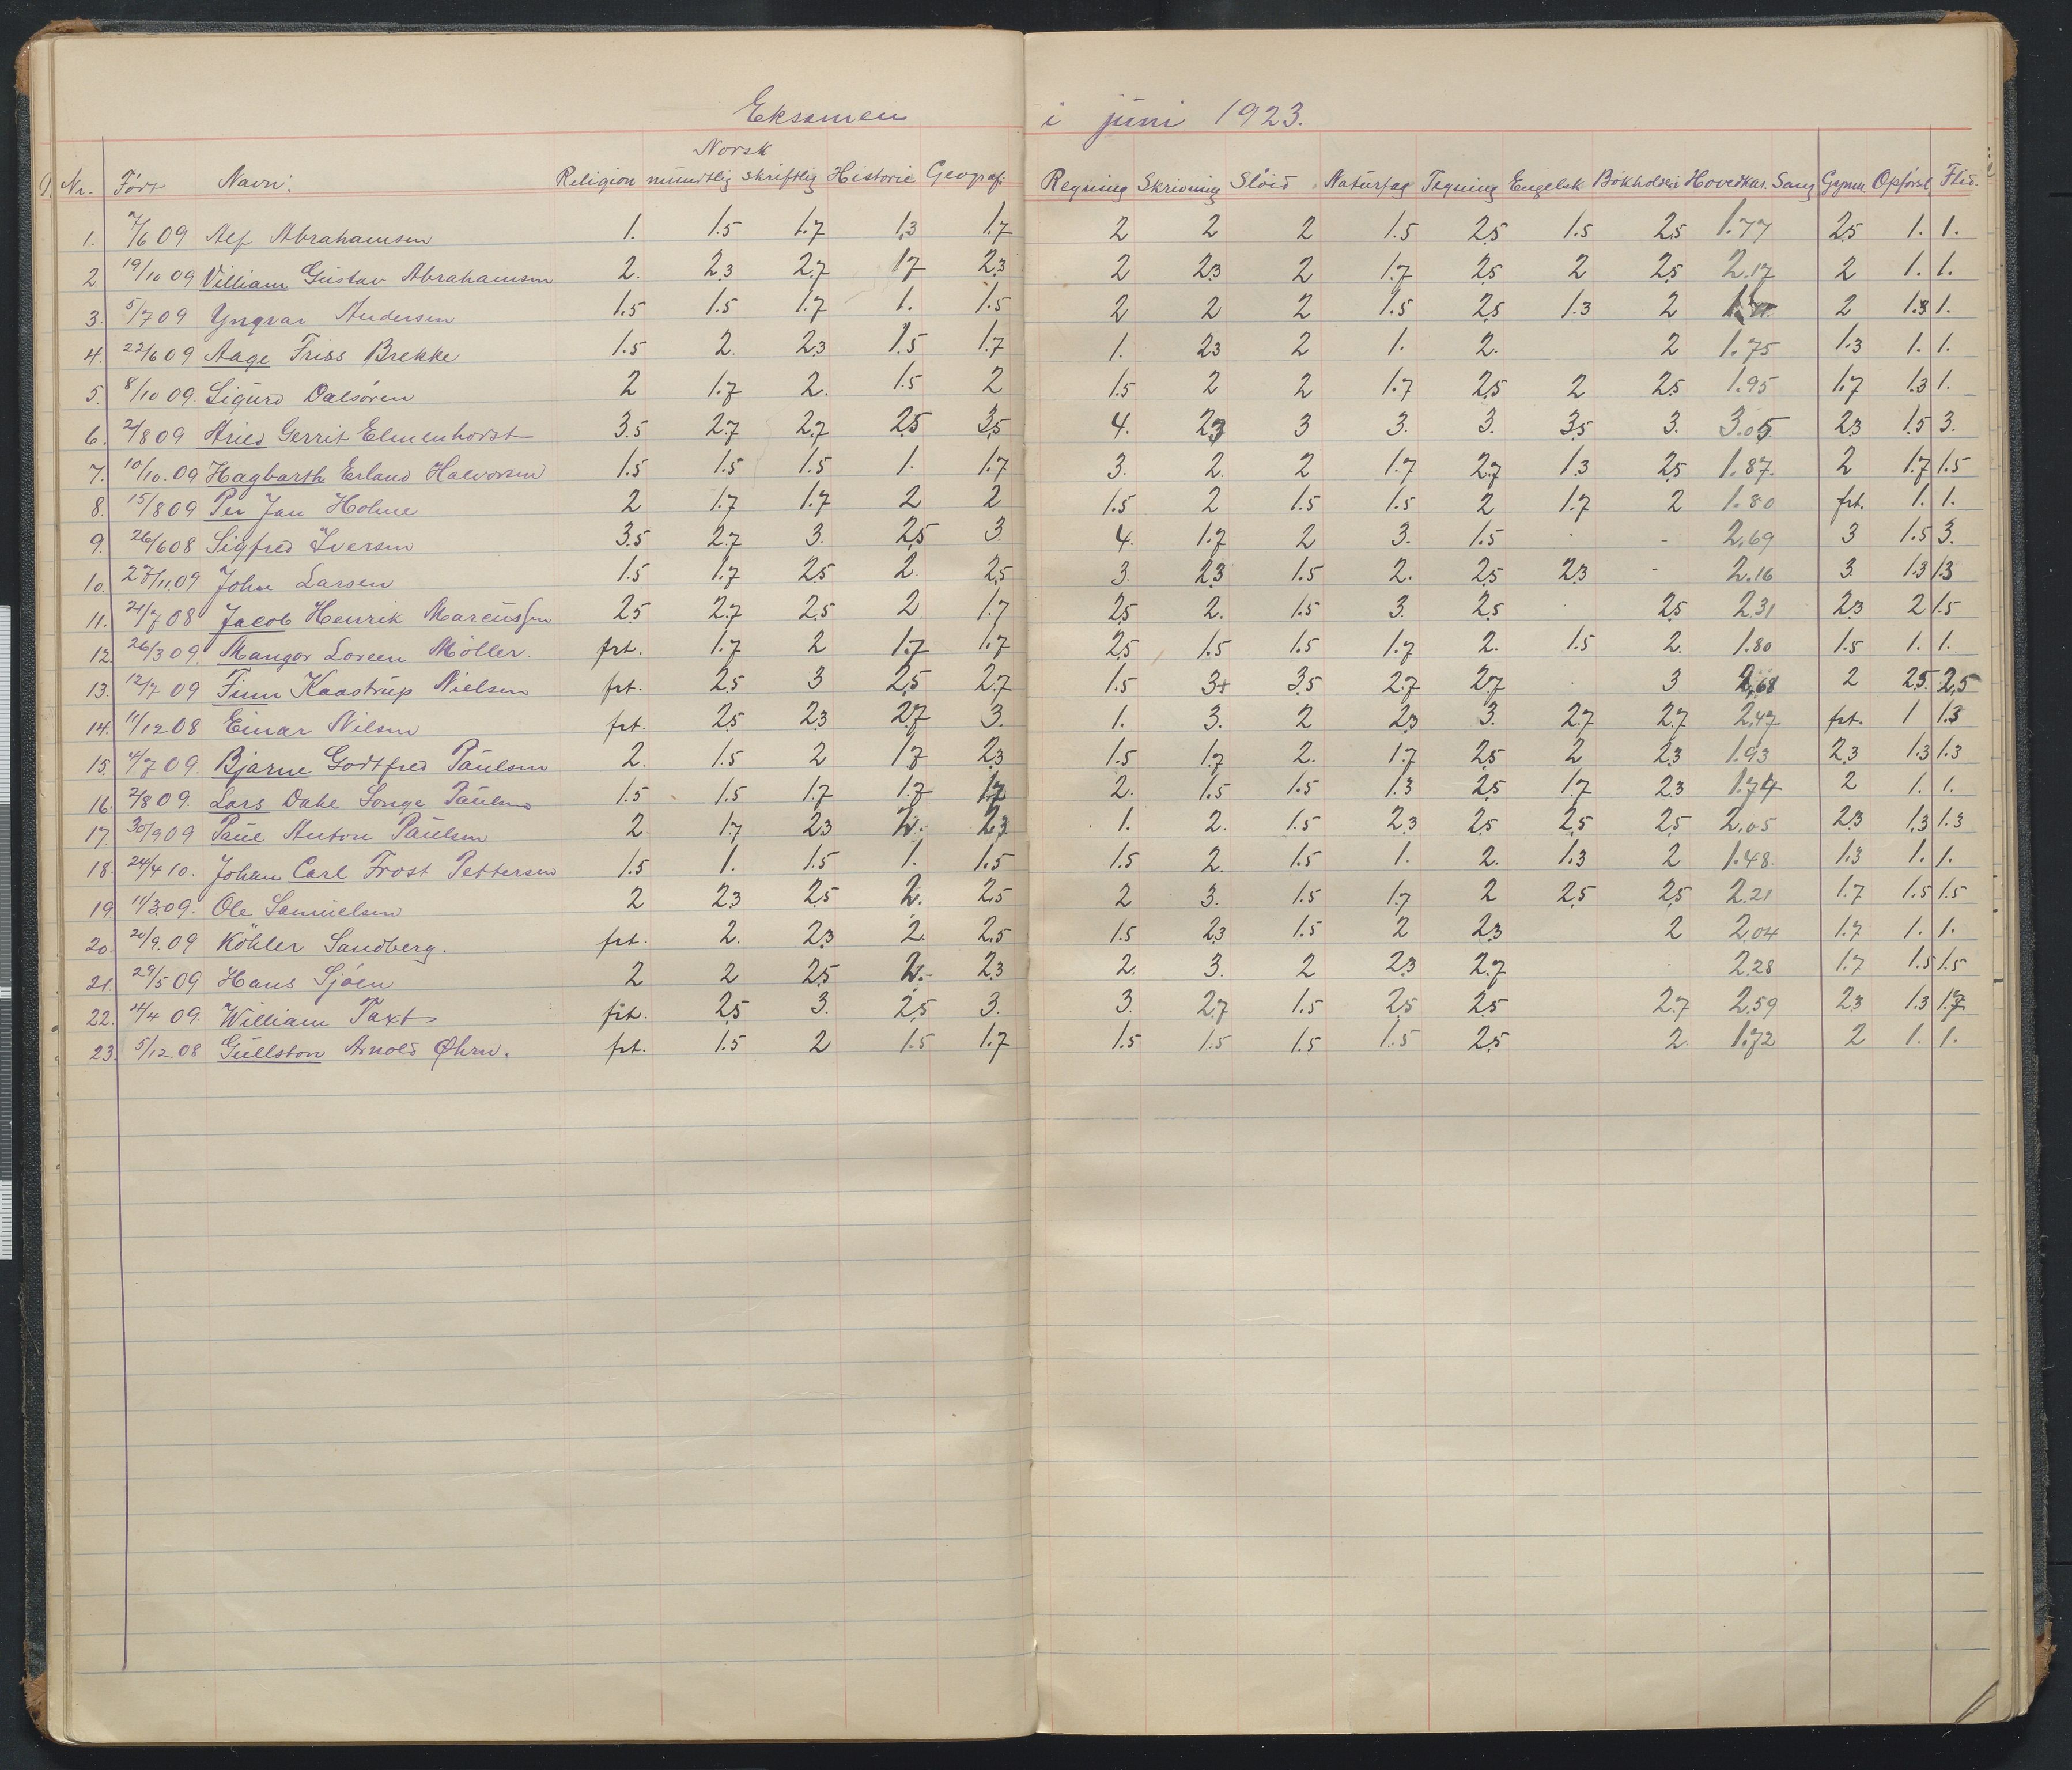 Eksamen i juni 1923.
Norsk
Nr. Født Navn: Religion mundtlig skriftlig Historie Geografi Regning Skrivning Sløid Naturfag Tegning Engelsk Bokholderi Hovedkar. Sang Gymn. Opførsel Flid.
1. 7/6 09 Alf Abrahamsen 1. 1.5 1.7 1.3 1.7 2 2 2 1.5 2.5 1.5 2.5 1.77 2.5 1. 1.
2 19/10 09 Villiam Gustav Abrahamsen 2. 2.3 2.7 1.7 2.3 2 2.3 2 1.7 2.5 2 2.5 2.17 2 1. 1.
3. 5/7 09 Yngvar Andersen 1.5 1.5 1.7 1. 1.5 2 2 2 1.5 2.5 1.3 2 2 1.3 1.
4. 22/6 09 Aage Friss Brekke 1.5 2. 2.3 1.5 1.7 1. 2.3 2 1. 2. 2 1.75 1.3 1. 1.
5. 8/10 09 Sigurd Dalsøren 2 1.7 2. 1.5 2 1.5 2 2 1.7 2.5 2 2.5 1.95 1.7 1.3 1.
6. 2/8 09 Aries Gerrit Elmenhorst 3.5 2.7 2.7 2.5 3.5 4. 2.3 3 3. 3. 3.5 3. 3.05 2.3 1.5 3.
7. 10/10. 09 Hagbarth Erland Halvorsen 1.5 1.5 1.5 1. 1.7 3. 2. 2 1.7 2.7 1.3 2.5 1.87. 2 1.7 1.5
8. 15/8 09 Per Jan Holme 2 1.7 1.7 2 2 1.5 2 1.5 1.5 2 1.7 2 1.80 frt. 1. 1.
9. 26/6 08 Sigfred Iversen 3.5 2.7 3. 2.5 3. 4. 1.7 2 3. 1.5 - - 2.69 3 1.5 3.
10. 27/11.09 John Larsen 1.5 1.7 2.5 2. 2.5 3. 2.3 1.5 2. 2.5 2.3 - 2.16 3. 1.3 1.3
11. 21/7 08 Jacob Henrik Marcussen 2.5 2.7 2.5 2 1.7 2.5 2. 1.5 3. 2.5 2.5 2.31 2.3 2 1.5
12. 26/3 09. Mangor Loreen Møller. frt. 1.7 2 1.7 1.7 2.5 1.5 1.5 1.7 2. 1.5 2. 1.80 1.5 1. 1.
13. 12/7 09 Finn Kaastrup Nielsen frt. 2.5 3 2.5 2.7 1.5 3+ 3.5 2.7 2.7 3 2.68 2 2.5. 2.5
14. 11/12 08 Einar Nilsen frt. 2.5 2.3 2.7 3. 1. 3. 2 2.3 3. 2.7 2.7 2.47 frt. 1 1.3
15. 4/7 09. Bjarne Godtfred Paulsen 2. 1.5 2 1.7 2.3 1.5 1.7 2. 1.7 2.5 2 2.3 1.93 2.3 1.3 1.3
16. 2/8 09. Lars Dahl Songe Paulsen 1.5 1.5 1.7 1.7 1.7 2. 1.5 1.5 1.3 2.5 1.7 2.3 1.74 2 1. 1.
17. 30/9 09 Paul Anton Paulsen 2 1.7 2.3 2. 2.3 1. 2. 1.5 2.3 2.5 2.5 2.5 2.05 2.3 1.3 1.3
18. 24/4 10. Johan Carl Frost Pettersen 1.5 1. 1.5 1. 1.5 1.5 2. 1.5 1. 2. 1.3 2 1.48. 1.3 1. 1.
19. 11/3.09. Ole Samuelsen 2 2.3 2.5 2. 2.5 2 3. 1.5 1.7 2 2.5 2.5 2.21 1.7 1.5 1.5
20. 20/9.09 Köhler Sandberg. frt. 2. 2.3 2. 2.5 1.5 2.3 1.5 2 2.3 2 2.04 1.7 1. 1.
21. 29/5 09 Hans Sjøen 2 2 2.5 2. 2.3 2. 3. 2 2.3 2.7 2.28 1.7 1.5 1.5
22. 4/4 09. William Taxt frt. 2.5 3. 2.5 3. 3. 2.7 1.5 2.5 2.5 2.7 2.59 2.3 1.3 1.7
23. 5/12.08 Gullston Arnold Øhrn. frt. 1.5 2 1.5 1.7 1.5 1.5 1.5 1.5 2.5 2. 1.72 2 1. 1.